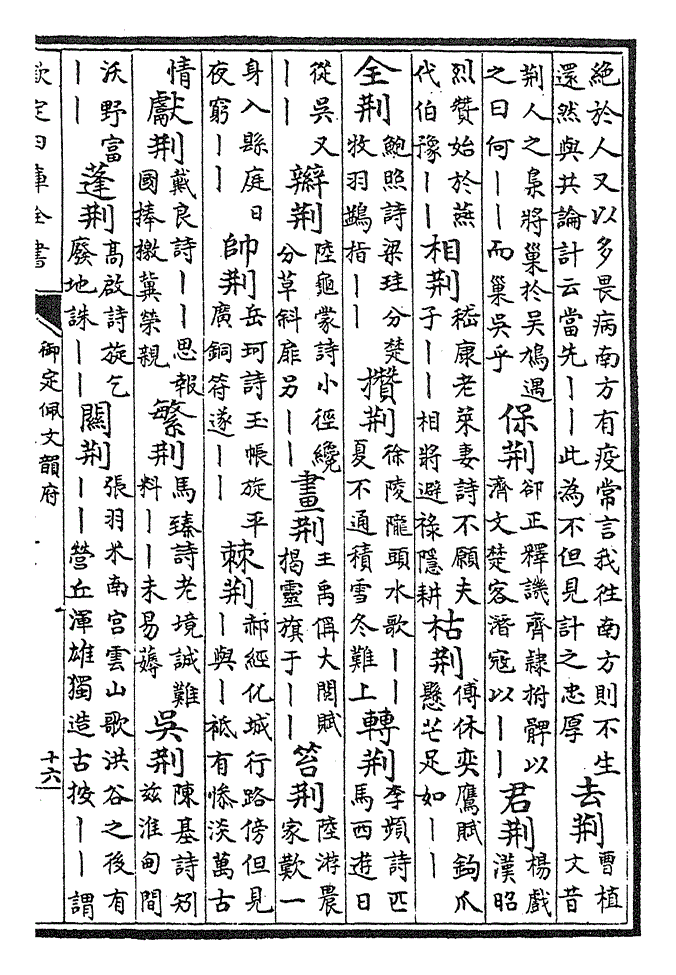 絶於人又以多畏病南方有疫常言我往南方則不生
還然與共論計云當先丨丨此為不但見計之忠厚
去荆
曹植
文昔
荆人之梟將巢於吳鳩遇
之曰何丨丨而巢吳乎
保荆
卻正釋譏齊隷拊髀以
濟文楚客潛宼以丨丨
君荆
楊戲
漢昭
烈贊始於燕
代伯豫丨丨
相荆
嵇康老萊妻詩不願夫
子丨丨相將避禄隱耕
枯荆
傅休奕鷹賦鉤爪
懸芒足如丨丨
全荆
鮑照詩梁珪分楚
牧羽鷁指丨丨
攢荆
徐陵隴頭水歌丨丨
夏不通積雪冬難上
轉荆
李頻詩匹
馬西遊日
從吳又
丨丨
辮荆
陸龜蒙詩小徑纔
分草斜扉另丨丨
畫荆
王禹偁大閲賦
揭靈旗于丨丨
笞荆
陸游農
家歎一
身入縣庭日
夜窮丨丨
帥荆
岳珂詩玉帳旋平
廣銅符遂丨丨
棘荆
郝經化城行路傍但見
丨與丨祗有慘淡萬古
情
獻荆
戴良詩丨丨思報
國捧檄冀榮親
繁荆
馬臻詩老境誠難
料丨丨未易薅
吳荆
陳基詩矧
兹淮甸間
沃野富
丨丨
蓬荆
高啟詩旋乞
廢地誅丨丨
關荆
張羽米南宫雲山歌洪谷之後有
丨丨營丘渾雄獨造古按丨丨謂
欽定四庫全書
御定佩文韻府
十六